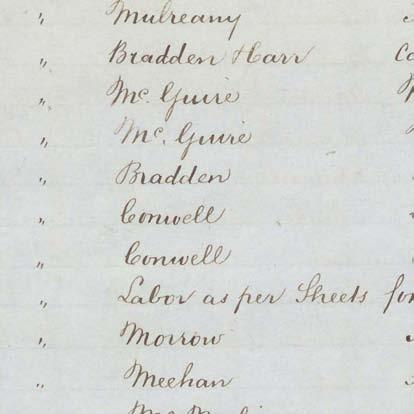 " Mulreany
" Bradden & Carr
" Mc. Guire
" Mc. Guire
" Bradden
" Conwell
" Conwell
" Labor as per Sheets for
" Morrow
" Meehan